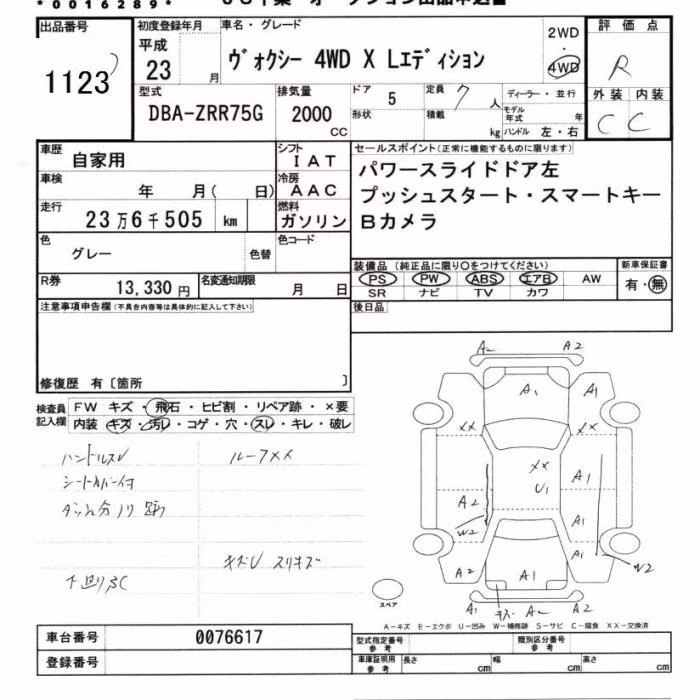 *0016289*
出品番号
1123
初度登録年月
平成
23 月
車名・グレード
ヴォクシー 4WD X Lエディション
2WD
・
4WD
評価点
R
外装 内装
C C
型式
DBA-ZRR75G
排気量
2000
CC
ドア
5
形状
定員
7 人
積載
kg
ディーラー・並行
モデル年式 年
ハンドル 左・右
車歴
自家用
シフト
IAT
車検
年 月( 日)
冷房
AAC
走行
23万6千505 km
燃料
ガソリン
色
グレー
色替
色コード
R券
13,330 円
名変通知期限
月 日
セールスポイント(正常に機能するものに限ります)
パワースライドドア左
プッシュスタート・スマートキー
Bカメラ
装備品(純正品に限り○をつけてください)
PS PW ABS エアB AW
SR ナビ TV カワ
新車保証書
有・無
後日品
注意事項申告欄(不具合内容等は具体的に記入して下さい)
修復歴 有〔箇所 〕
検査員
記入欄
FW キズ・飛石・ヒビ割・リペア跡・×要
内装 キズ・汚レ・コゲ・穴・スレ・キレ・破レ
ハンドルスレ
ルーフXX
キズU スリキズ
下回りSC
A2 A2
A1 A1
XX XX
XX
U1
A1
A2
A1
W2
A1
W2
A2 A1
A1 A2 A2
スペア
A-キズ E-エクボ U-凹み W-補修跡 S-サビ C-腐食 XX-交換済
車台番号
0076617
登録番号
型式指定番号
参考
類別区分番号
参考
車庫証明用
参考
長さ cm
幅 cm
高さ cm